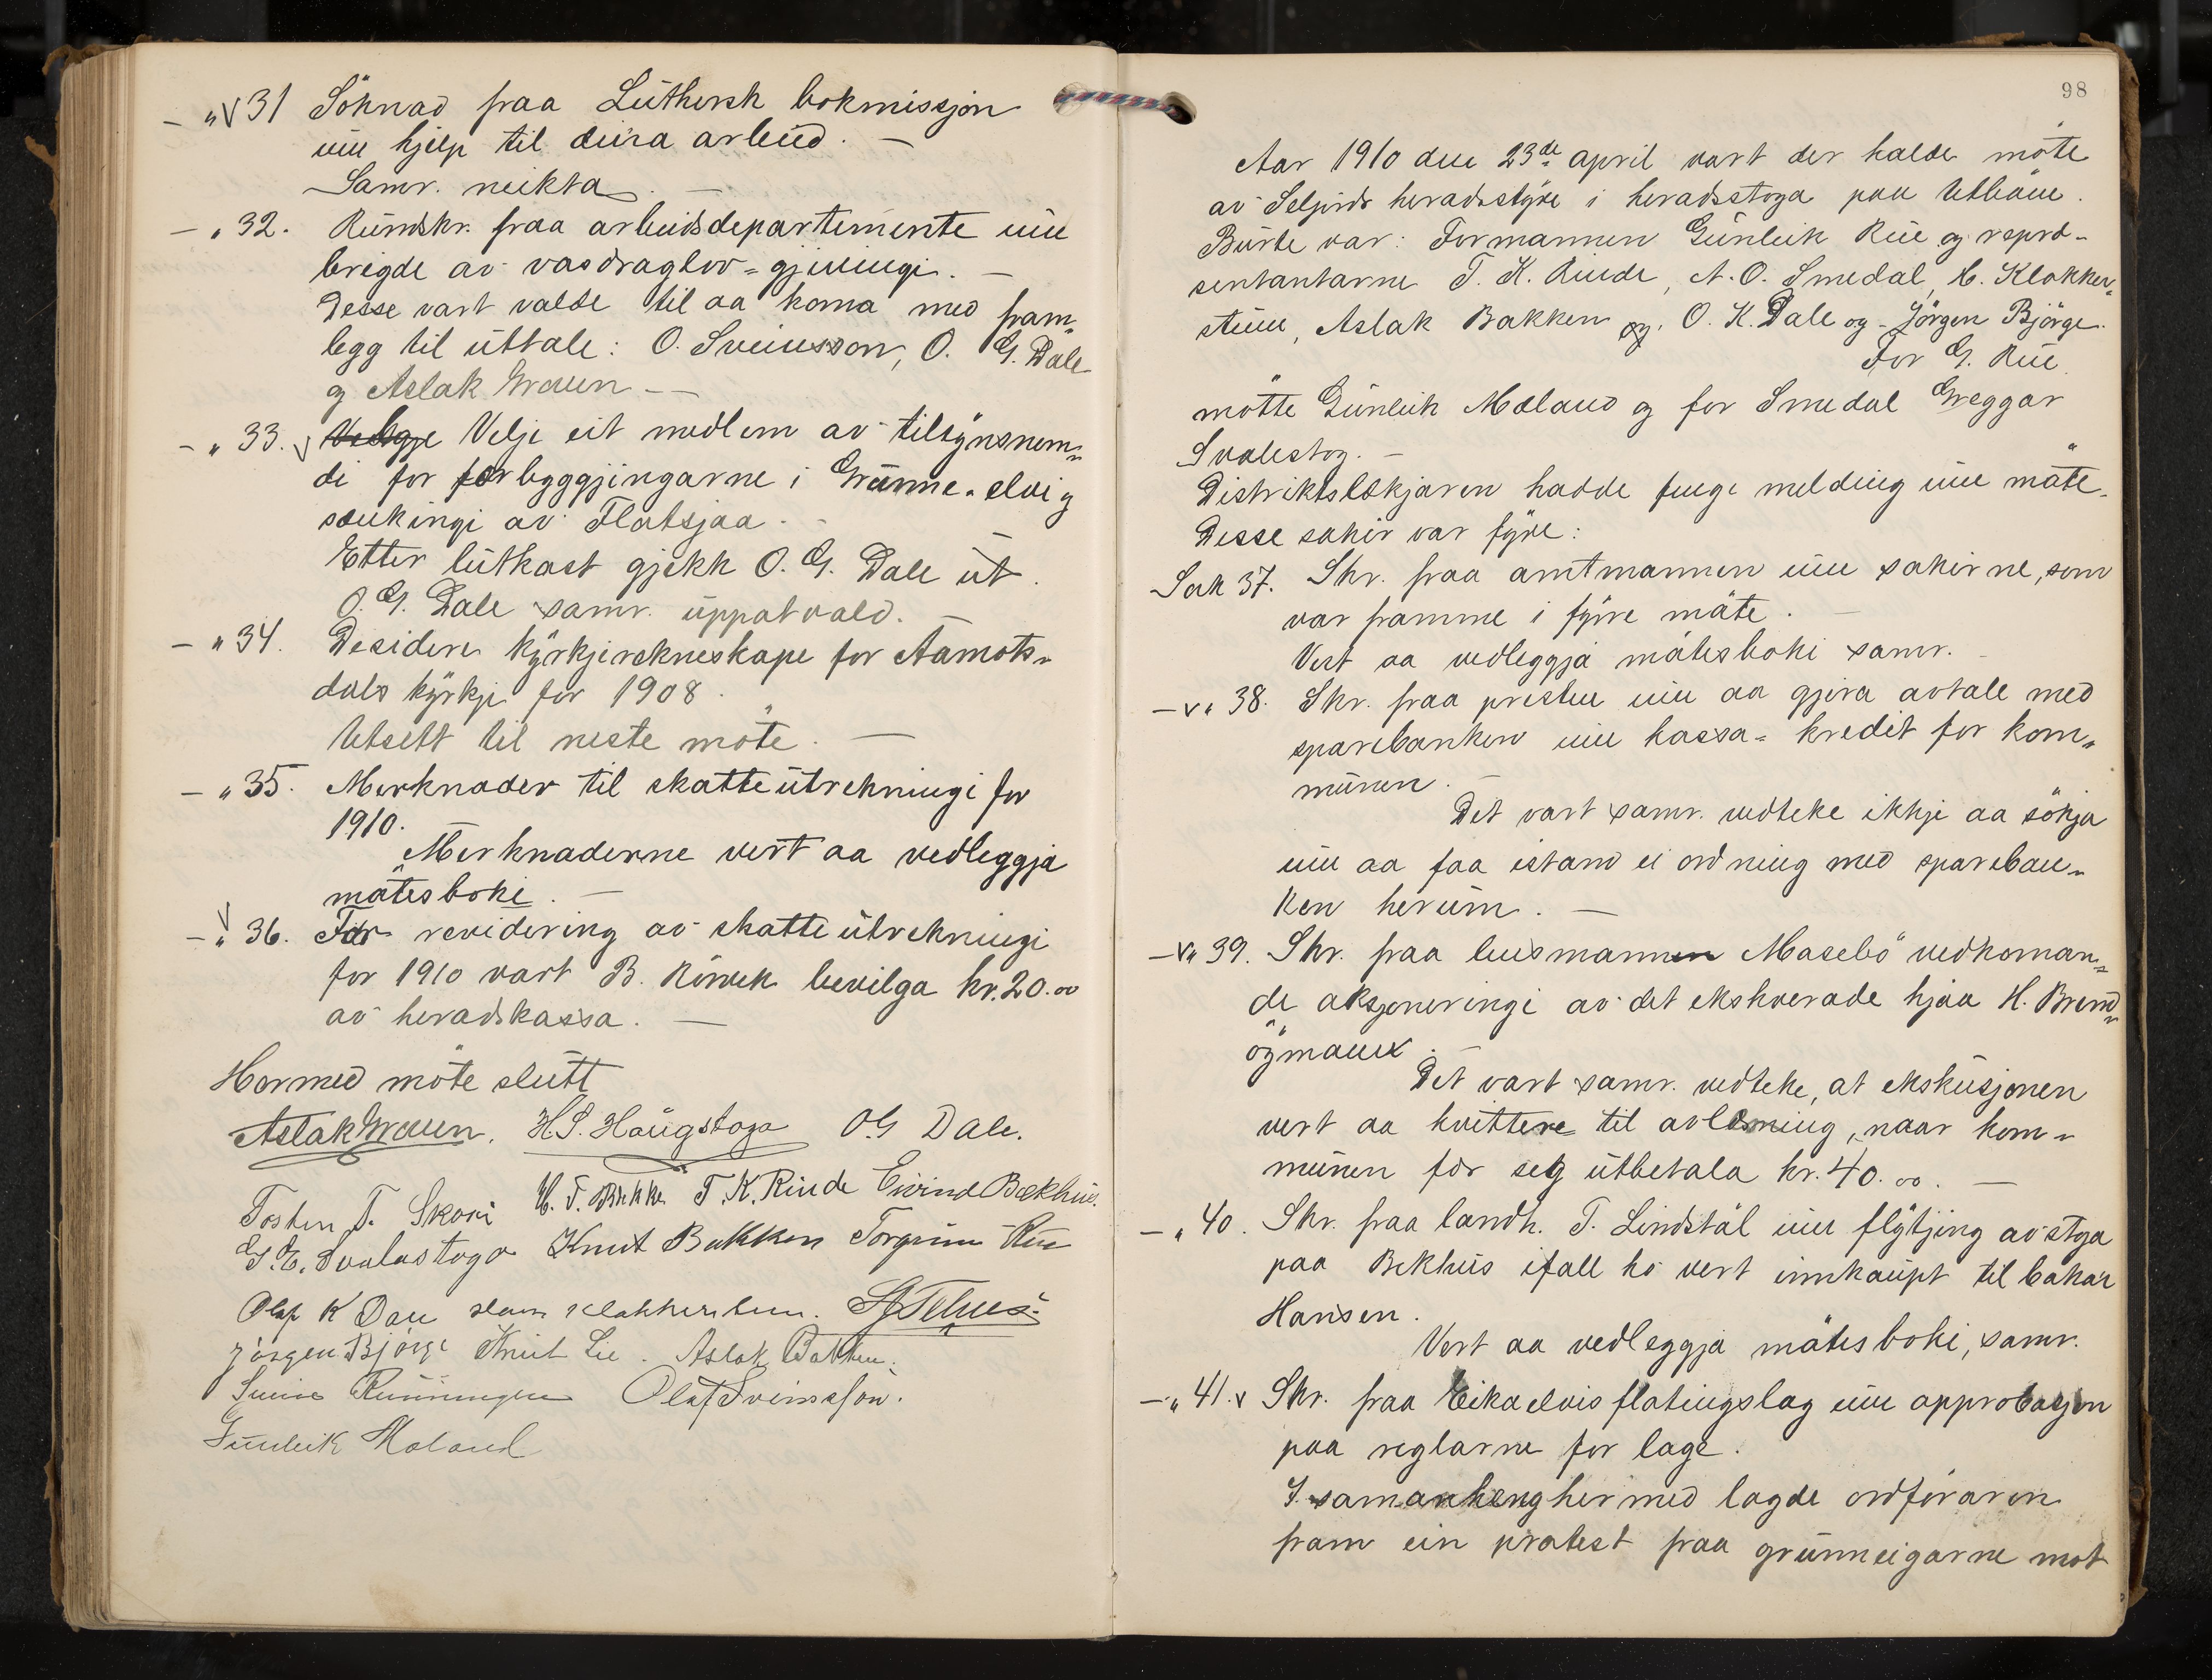 - " V 31 Söknad fraa Luthersk bokmissjon
um hjelp til deira arbeid. -
Samr. neikta. -
- " 32. Rundskr. fraa arbeidsdepartemente um
brigde av vasdraglov-gjevingi. -
Desse vart valde til aa koma med fram-
legg til uttale: O. Sveinsson, O. G. Dale
og Aslak Graven -
- " 33. V Velje eit medlem av tilsynsnem-
di for forbyggjingarne i Grunne-elvi og
senkingi av Flatsjaa. -
Etter lutkast gjekk O. G. Dale ut.
O. G. Dale samr. uppatvald.
- " 34. Desidere kyrkjerekneskape for Aamots-
dals kyrkje for 1908.
Utsett til neste möte. -
- " 35. Merknader til skatteutrekningi for
1910.
Merknaderne vert aa vedleggja
mötesboki. -
- V " 36. For revidering av skatteutrekningi
for 1910 vart B. Rörvek bevilga kr. 20.00
av heradskassa. -
Hermed möte slutt
Aslak Graven. H. S. Haugstoga O G Dale.
Tosten T. Skori T. K. Rinde Eivind Bekhus.
G. E. Svalastoga Knut Bakken Torgrim Rue
Olaf K Dale
Jörgen Björge Knut Lie. Aslak Bakken.
Olaf Sveinsson.
Gunleik Moland
98
Aar 1910 den 23de april vart der halde möte
av Seljords heradsstyre i heradsstoga paa Utbøen.
Burte var: Formannen Gunleik Rue og repræ-
sentantarne T. K. Rinde, A. O. Smedal, O. Klokker-
steinn, Aslak Bakken og O. K. Dale og Jörgen Björge.
For G. Rue
mötte Gunleik Moland og for Smedal Greggar
Svalestog. -
Distriktslækjaren hadde fenge melding um möte.
Desse sakir var fyre:
Sak 37. Skr. fraa amtmannen um sakirne, som
var framme i fyrre möte. -
Vert aa vedleggja mötesboki samr. -
- V " 38. Skr. fraa presten um aa gjera avtale med
sparebanken um kassa-kredit for kom-
munen. -
Det vart samr. vedteke ikkje aa sökja
um aa faa istand ei ordning med spareban-
ken herum. -
- V " 39. Skr. fraa lensmannen Masebö vedkoman-
de aksjoneringi av det ekskverade hjaa H. Brend-
ögmann. -
Det vart samr. vedteke, at ekskusjonen
vert aa kvittere til avlæsning, naar kom-
munen for seg utbetala kr. 40.00. -
- " 40. Skr. fraa landh. T. Lindstöl um flytjing av stoga
paa Bekhus ifall ho vert innkaupt til bakar
Hansen.
Vert aa vedleggja mötesboki, samr.
- " 41. V Skr. fraa Eikaelvis flötingslag um approbasjon
paa reglarne for lage.
I samanheng hermed lagde ordföraren
fram ein protest fraa grunneigarne mot